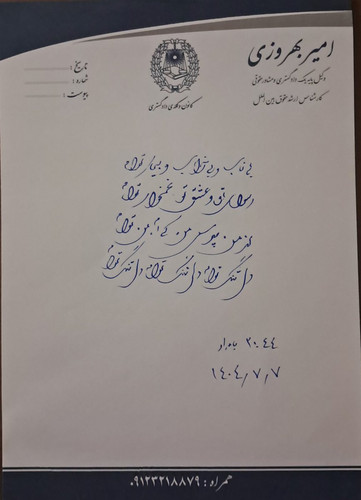 امیر بهروزی
وکیل پایه یک دادگستری و مشاور حقوقی
کارشناس ارشد حقوق بین الملل
کانون وکلای دادگستری
تاریخ:
شماره:
پیوست:
بی تاب و بی قرار و بیمار توام
رسوای تو و عشق تو غمخوار توام
از من مپرس من کی ام من توام
دل تنگ توام دل تنگ توام دل تنگ توام
۲۰:۴۴ بامداد
۱۴۰۴/۷/۷
همراه: ۰۹۱۲۳۲۱۸۸۷۹